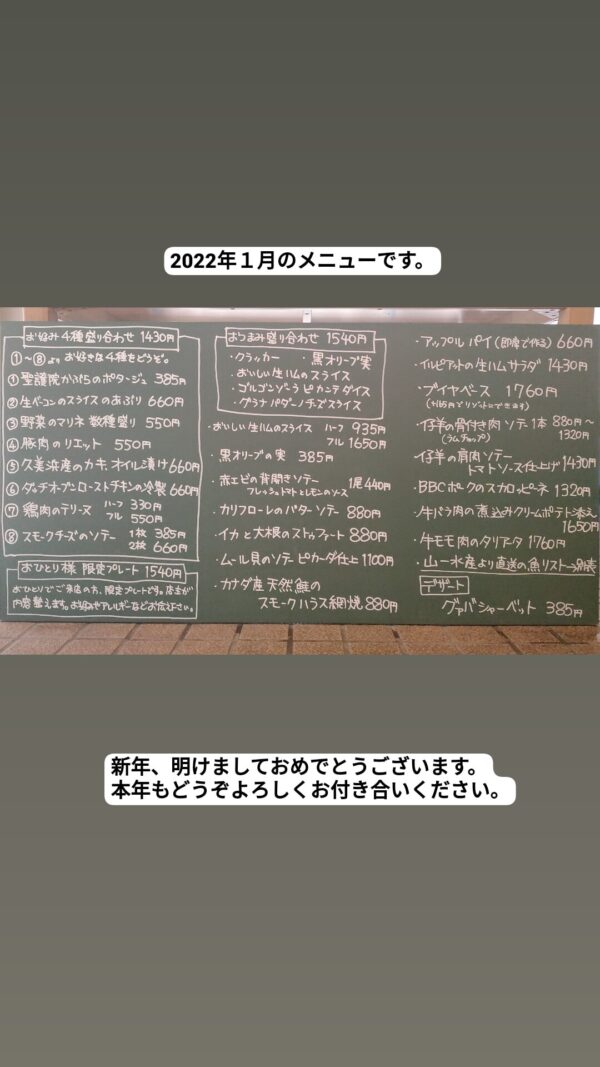 2022年１月のメニューです。
お好み4種盛り合わせ 1430円
①〜⑧より お好きな4種をどうぞ。
① 聖護院かぶらのポタージュ 385円
② 生ベーコンのスライスのあぶり 660円
③ 野菜のマリネ 数種盛り 550円
④ 豚肉のリエット 550円
⑤ 久美浜産のカキ、オイル漬け 660円
⑥ ダッチオーブンローストチキンの冷製 660円
⑦ 鶏肉のテリーヌ ハーフ 330円
フル 550円
⑧ スモークチーズのソテー 1枚 385円
2枚 660円
おひとり様 限定プレート 1540円
おひとりでご来店の方、限定プレートです。店主が
内容整えます。お好みやアレルギーなどお伝え下さい。
おつまみ盛り合わせ 1540円
・クラッカー ・黒オリーブ実
・おいしい生ハムのスライス
・ゴルゴンゾーラ ピカンテ ダイス
・グラナパダーノチーズスライス
・おいしい生ハムのスライス ハーフ 935円
フル 1650円
・黒オリーブの実 385円
・赤エビの背開きソテー
フレッシュトマトとレモンのソース 1尾 440円
・カリフローレのバターソテー 880円
・イカと大根のストゥファート 880円
・ムール貝のソテー ピカーダ仕上 1100円
・カナダ産 天然 鮭の
スモークハラス網焼 880円
・アップルパイ(即席で作る) 660円
・イルピアットの生ハムサラダ 1430円
・ブイヤベース 1760円
・仔羊の骨付き肉 ソテー 1本 880円〜
(ラムチョップ) 1320円
・仔羊の肩肉 ソテー
トマトソース仕上げ 1430円
・BBCポークのスカロッピーネ 1320円
・牛バラ肉の煮込みクリームポテト添え
1650円
・牛モモ肉のタリアータ 1760円
・山一水産より直送の魚リスト→別表
デザート
グァバシャーベット 385円
新年、明けましておめでとうございます。
本年もどうぞよろしくお付き合いください。